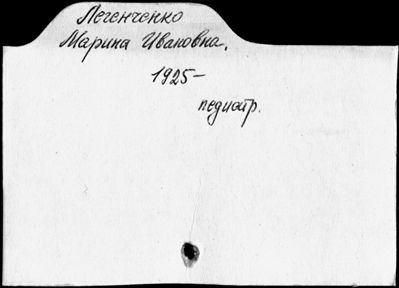 Легенченко
Марина Ивановна.
1925-
педиатр.